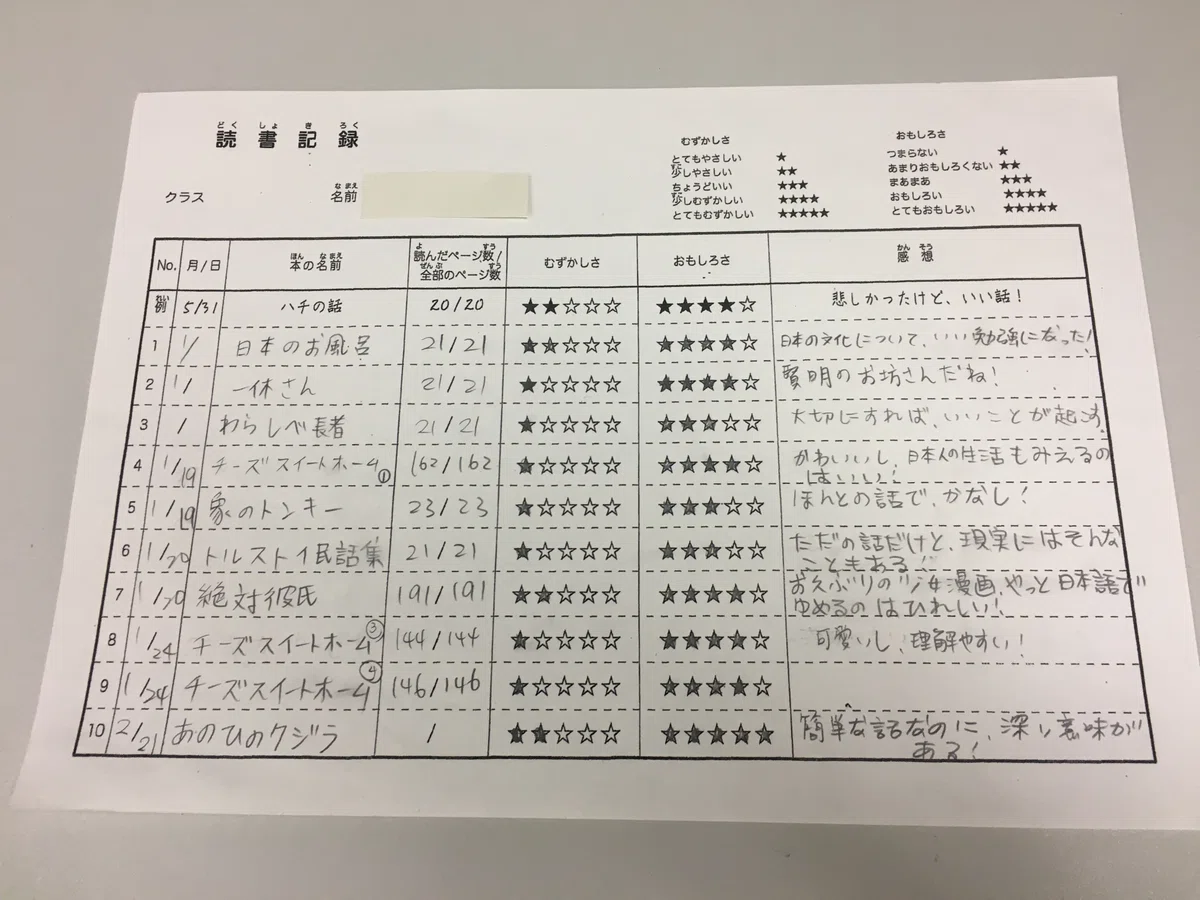 どくしょきろく
読書記録
クラス
なまえ
名前
むずかしさ
とてもやさしい ★
すこ
少しやさしい ★★
ちょうどいい ★★★
すこ
少しむずかしい ★★★★
とてもむずかしい ★★★★★
おもしろさ
つまらない ★
あまりおもしろくない ★★
まあまあ ★★★
おもしろい ★★★★
とてもおもしろい ★★★★★
No. 月/日 本の名前 読んだページ数/全部のページ数 むずかしさ おもしろさ 感想
例 5/31 ハチの話 20/20 ★★☆☆☆ ★★★★☆ 悲しかったけど、いい話!
1 1/ 日本のお風呂 21/21 ★★☆☆☆ ★★★★☆ 日本の文化について、いい勉強になった!
2 1/ 一休さん 21/21 ★☆☆☆☆ ★★★★☆ 賢明のお坊さんだね!
3 / わらしべ長者 21/21 ★☆☆☆☆ ★★★☆☆ 大切にすれば、いいことが起こす
4 1/19 チーズスイートホーム① 162/162 ★☆☆☆☆ ★★★★☆ かわいいし、日本人の生活もみえるの
はいい!
5 1/19 象のトンキー 23/23 ★☆☆☆☆ ★★★☆☆ ほんとの話で、かなし!
6 1/20 トルストイ民話集 21/21 ★☆☆☆☆ ★★★☆☆ ただの話だけど、現実にはそんな
こともある!
7 1/20 絶対彼氏 191/191 ★★☆☆☆ ★★★★☆ おえぶりの少女漫画、やっと日本語で
ゆめるのはひれしい!
8 1/24 チーズスイートホーム③ 144/144 ★☆☆☆☆ ★★★★☆ 可愛いし、理解やすい!
9 1/24 チーズスイートホーム④ 146/146 ★☆☆☆☆ ★★★★☆
10 2/21 あのひのクジラ / ★★☆☆☆ ★★★★★ 簡単な話なのに、深い意味が
ある!